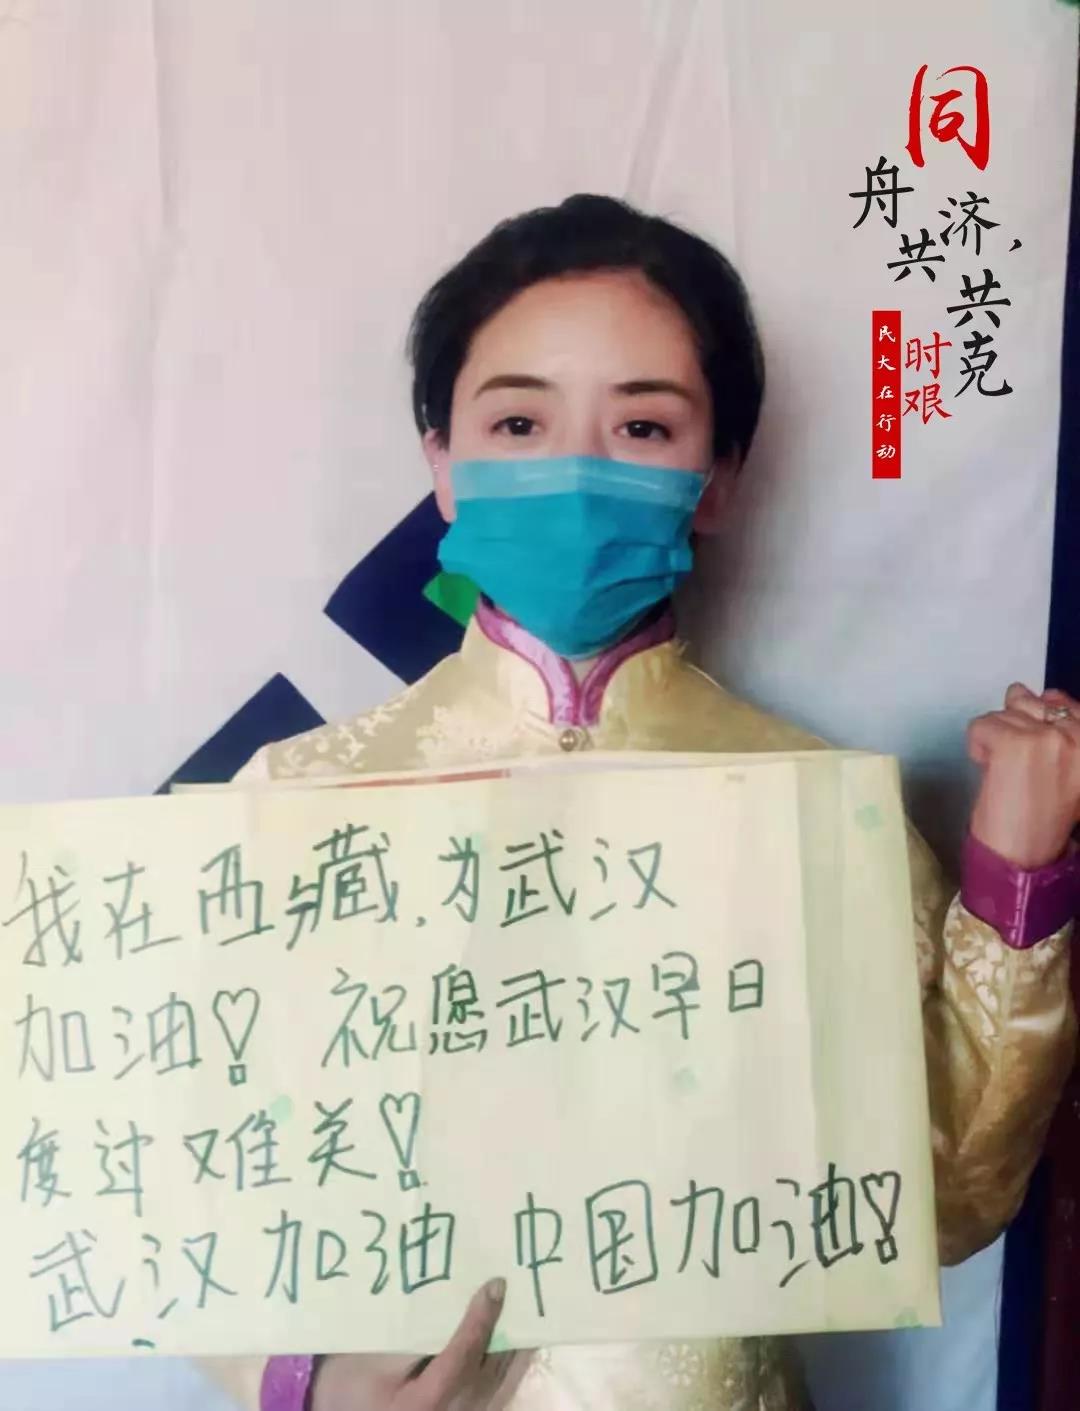 同舟共济,
共克时艰
民大在行动
我在西藏,为武汉
加油! 祝愿武汉早日
度过难关!
武汉加油 中国加油!